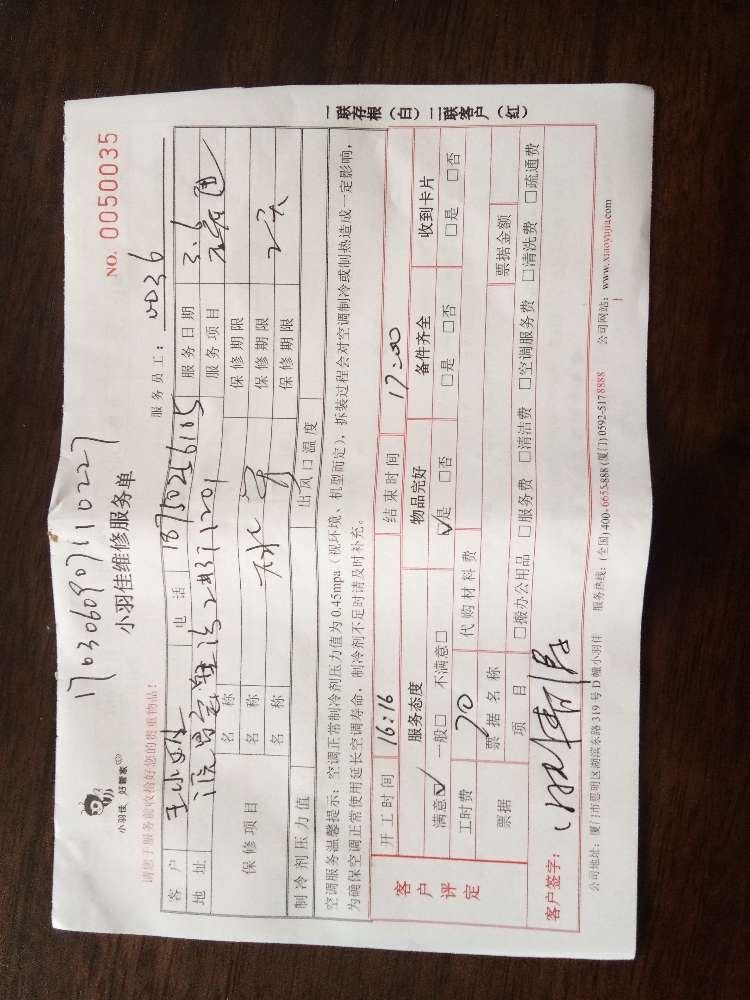 17030609071110227
NO. 0050035
小羽佳 好管家
小羽佳维修服务单
请您于服务前收拾好您的贵重物品!
服务员工: 0036
客户 电话 18750256105 服务日期 3.6
地址 服务项目
保修项目 名称 保修期限
名称 保修期限
名称 保修期限
制冷剂压力值 出风口温度
空调服务温馨提示:空调正常制冷剂压力值为 0.45mpa(视环境、机型而定),拆装过程会对空调制冷或制热造成一定影响,
为确保空调正常使用延长空调寿命,制冷剂不足时请及时补充。
开工时间 16:16 结束时间 17:00
客户评定
服务态度 物品完好 备件齐全 收到卡片
满意☑ 一般□ 不满意□ ☑是 □否 □是 □否 □是 □否
工时费 70 代购材料费
票据 票据名称 票据金额
项目 □搬办公用品 □服务费 □清洁费 □空调服务费 □清洗费 □疏通费
客户签字:
公司地址:厦门市思明区湖滨东路 319 号 D 幢小羽佳 服务热线:(全国)400-6655-888 (厦门)0592-5178888 公司网站:www.xiaoyujia.com
一联存根(白)二联客户(红)